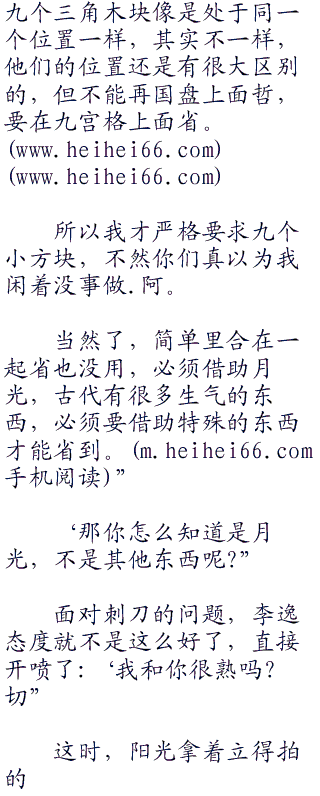 九个三角木块像是处于同一
个位置一样，其实不一样，
他们的位置还是有很大区别
的，但不能再国盘上面哲，
要在九宫格上面省。
(www.heihei66.com)
(www.heihei66.com)
所以我才严格要求九个
小方块，不然你们真以为我
闲着没事做.阿。
当然了，简单里合在一
起省也没用，必须借助月
光，古代有很多生气的东
西，必须要借助特殊的东西
才能省到。(m.heihei66.com
手机阅读)”
‘那你怎么知道是月
光，不是其他东西呢?”
面对刺刀的问题，李逸
态度就不是这么好了，直接
开喷了:‘我和你很熟吗?
切”
这时，阳光拿着立得拍
的